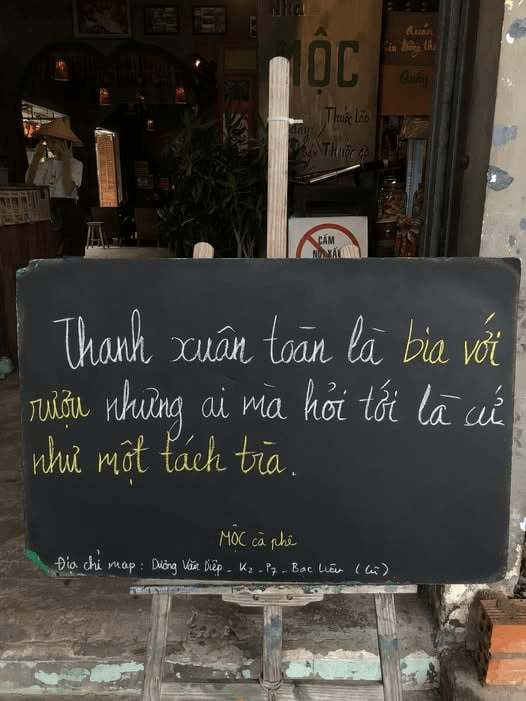 Nhà
MỘC
Thuốc Lào
Thuốc
Quán
Quầy
CẤM
NÓI XẤU
Thanh xuân toàn là bia với
rượu nhưng ai mà hỏi tới là cứ
như một tách trà.
MỘC cà phê
Địa chỉ map: Dương Văn Diệp - K2 - P7 - Bạc Liêu (cũ)